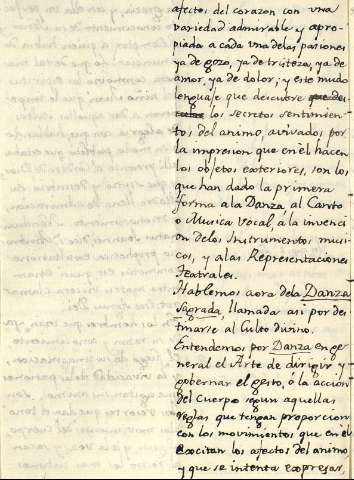 afectos del corazon con una
variedad admirable y apro-
piada a cada una delas pasiones
ya de gozo, ya de tristeza, ya de
amor, ya de dolor; y este mudo
lenguaje que descubre
los secretos sentimien-
tos del animo, avivados por
la impresion que en èl hacen
los objetos exteriores, son los
que han dado la primera
forma ala Danza, al Canto
o Musica vocal, á la invenci
on delos Instrumentos musi-
cos, y alas Representaciones
Teatrales.
Hablemos aora dela Danza
Sagrada, llamada asi por des
tinarse al Culto divino.
Entendemos por Danza en ge-
neral el Arte de dirigir y
gobernar el gesto, ó la accion
del Cuerpo segun aquellas
reglas que tengan proporcion
con los movimientos que en èl
excitan los afectos del animo
y que se intenta expresar,